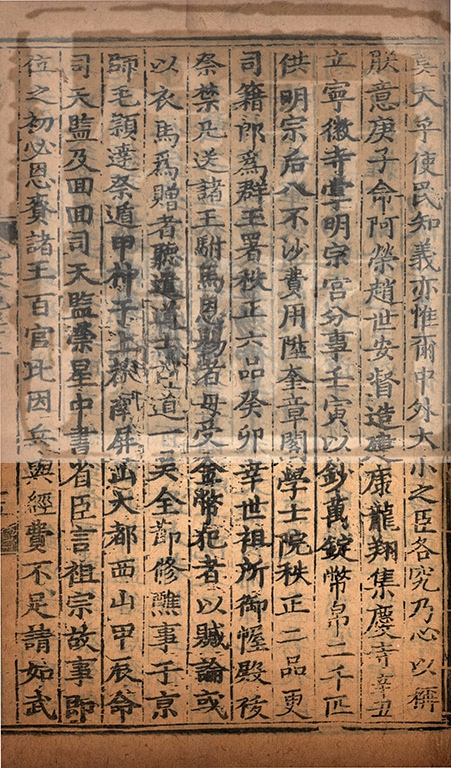 莫大乎使民知義亦惟爾中外大小之臣各究乃心以稱
朕意庚子命阿榮趙世安督造建康龍翔集慶寺辛丑
立寧徽寺掌明宗宮分事壬寅以鈔萬錠幣帛二千匹
供明宗后八不沙費用陞奎章閣學士院秩正二品更
司籍郎爲群玉署秩正六品癸卯幸世祖所御幄殿祓
祭禁凡送諸王駙馬恩賜者毋受金幣犯者以贓論或
以衣馬爲贈者聽遣道士苗道一吳全節修醮事于京
師毛穎達祭遁甲神于上都南屏山大都西山甲辰命
司天監及回回司天監禜星中書省臣言祖宗故事即
位之初必恩賚諸王百官比因兵興經費不足請如武